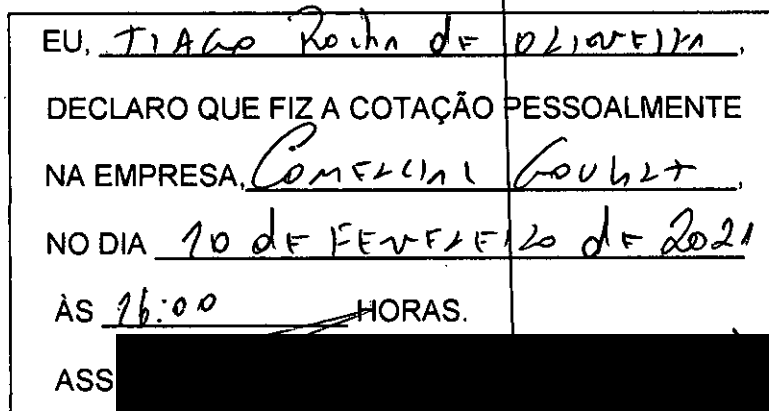 EU, TIAGO Rocha dE OLIVEIRA,
DECLARO QUE FIZ A COTAÇÃO PESSOALMENTE
NA EMPRESA, COMERCIAL
NO DIA 10 dE FEVEREIRO dE 2021
ÀS 16:00 HORAS.
ASS